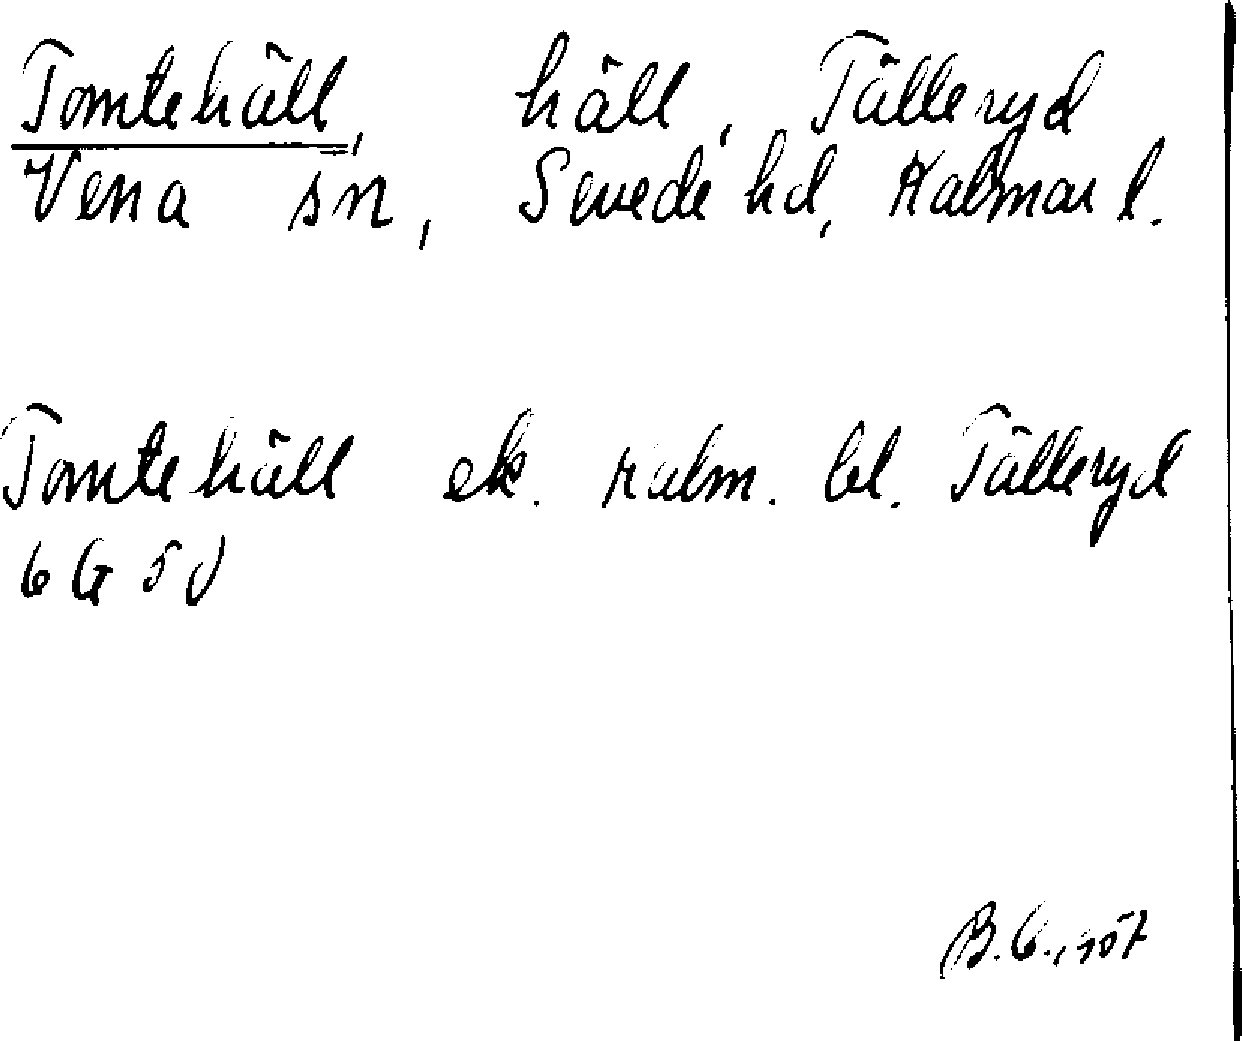 Tomtehäll, häll, Tälleryd
Vena sn, Sevede hd, Kalmar l.
Tomtehäll ek. Kalm. bl. Tälleryd
6 G 5 J